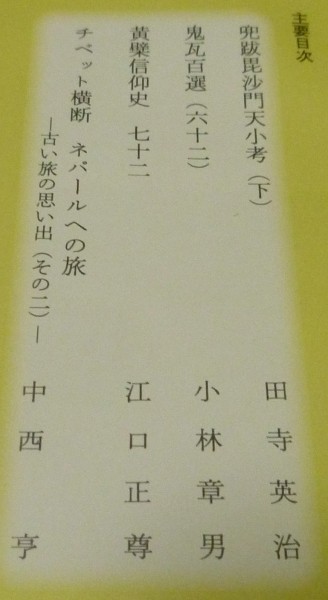 主要目次
兜跋毘沙門天小考（下）　田寺英治
鬼瓦百選（六十二）　小林章男
黄檗信仰史　七十二　江口正尊
チベット横断　ネパールへの旅
―古い旅の思い出（その二）―　中西亨